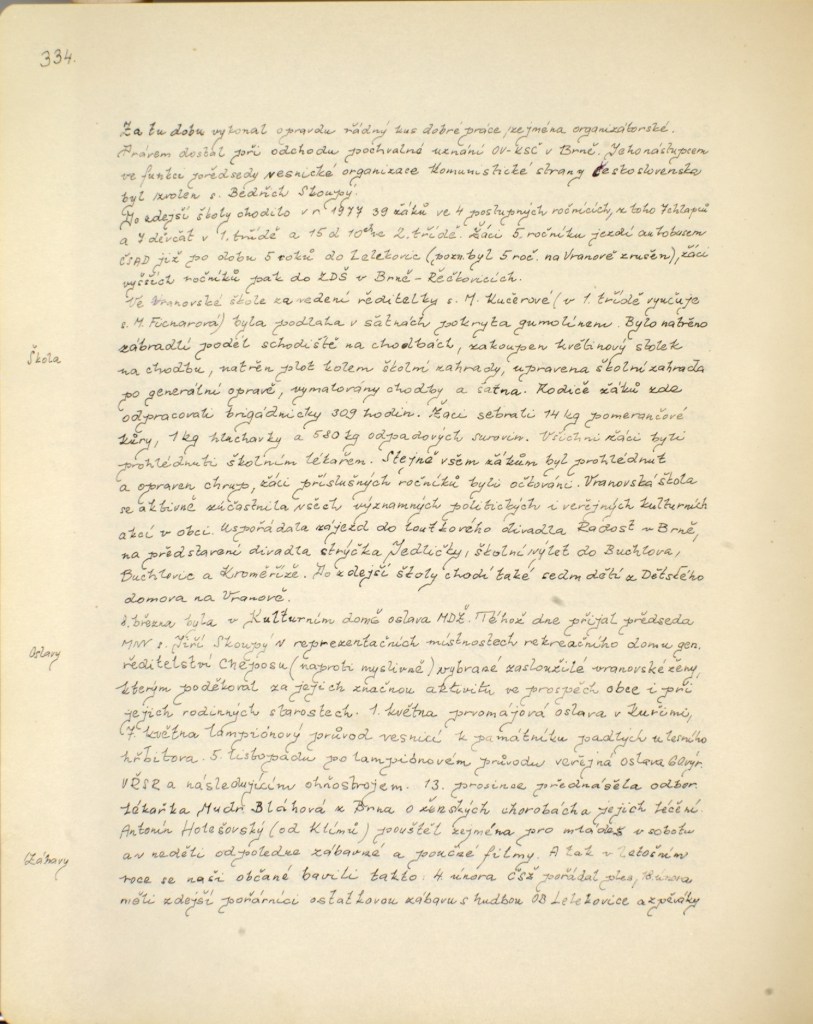 334.
Za tu dobu vykonal opravdu řádný kus dobré práce, zejména organizátorské.
Právem dostal při odchodu pochvalné uznání OV-KSČ v Brně. Jeho nástupcem
ve funkci předsedy vesnické organizace Komunistické strany Československa
byl zvolen s. Bedřich Skoupý.
Do zdejší školy chodilo v r. 1977 39 žáků ve 4 postupných ročnících, z toho 7 chlapců
a 7 děvčat v 1. třídě a 15 d 10 ch ve 2. třídě. Žáci 5. ročníku jezdí autobusem
ČSAD již po dobu 5 roků do Lelekovic (pozn. byl 5 roč. na Vranově zrušen), žáci
vyšších ročníků pak do ZDŠ v Brně - Řečkovicích.
Ve Vranovské škole za vedení ředitelky s. M. Kučerové (v 1. třídě vyučuje
s. M. Ficharová) byla podlaha v šatnách pokryta gumolinem. Bylo natřeno
Škola
zábradlí podél schodiště na chodbách, zakoupen květinový stolek
na chodbu, natřen plot kolem školní zahrady, upravena školní zahrada
po generální opravě, vymalovány chodby a šatna. Rodiče žáků zde
odpracovali brigádnicky 309 hodin. Žáci sebrali 14 kg pomerančové
kůry, 1 kg hluchavky a 580 kg odpadových surovin. Všichni žáci byli
prohlédnuti školním lékařem. Stejně všem žákům byl prohlédnut
a opraven chrup, žáci příslušných ročníků byli očkováni. Vranovská škola
se aktivně zúčastnila všech významných politických i veřejných kulturních
akcí v obci. Uspořádala zájezd do loutkového divadla Radost v Brně,
na představení divadla strýčka Jedličky, školní výlet do Buchlova,
Buchlovic a Kroměříže. Do zdejší školy chodí také sedm dětí z Dětského
domova na Vranově.
8. března byla v Kulturním domě oslava MDŽ. Téhož dne přijal předseda
Oslavy
MNV s. Jiří Skoupý v reprezentačních místnostech rekreačního domu gen.
ředitelství Chéposu (naproti myslivně) vybrané zasloužilé vranovské ženy,
kterým poděkoval za jejich značnou aktivitu ve prospěch obce i při
jejich rodinných starostech. 1. května prvomájová oslava v Kuřimi,
7. května lampiónový průvod vesnicí k památníku padlých u lesního
hřbitova. 5. listopadu po lampiónovém průvodu veřejná oslava 60 výr.
VŘSR a následujícím ohňostrojem. 13. prosince přednášela odbor.
lékařka Mudr Bláhová z Brna o ženských chorobách a jejich léčení.
Antonín Holešovský (od Klímů) pouštěl zejména pro mládež v sobotu
Zábavy
a v neděli odpoledne zábavné a poučné filmy. A tak v letošním
roce se naši občané bavili takto: 4. února ČSŽ pořádal ples, 18. února
měli zdejší požárníci ostatkovou zábavu s hudbou OB Lelekovice a zpěváky